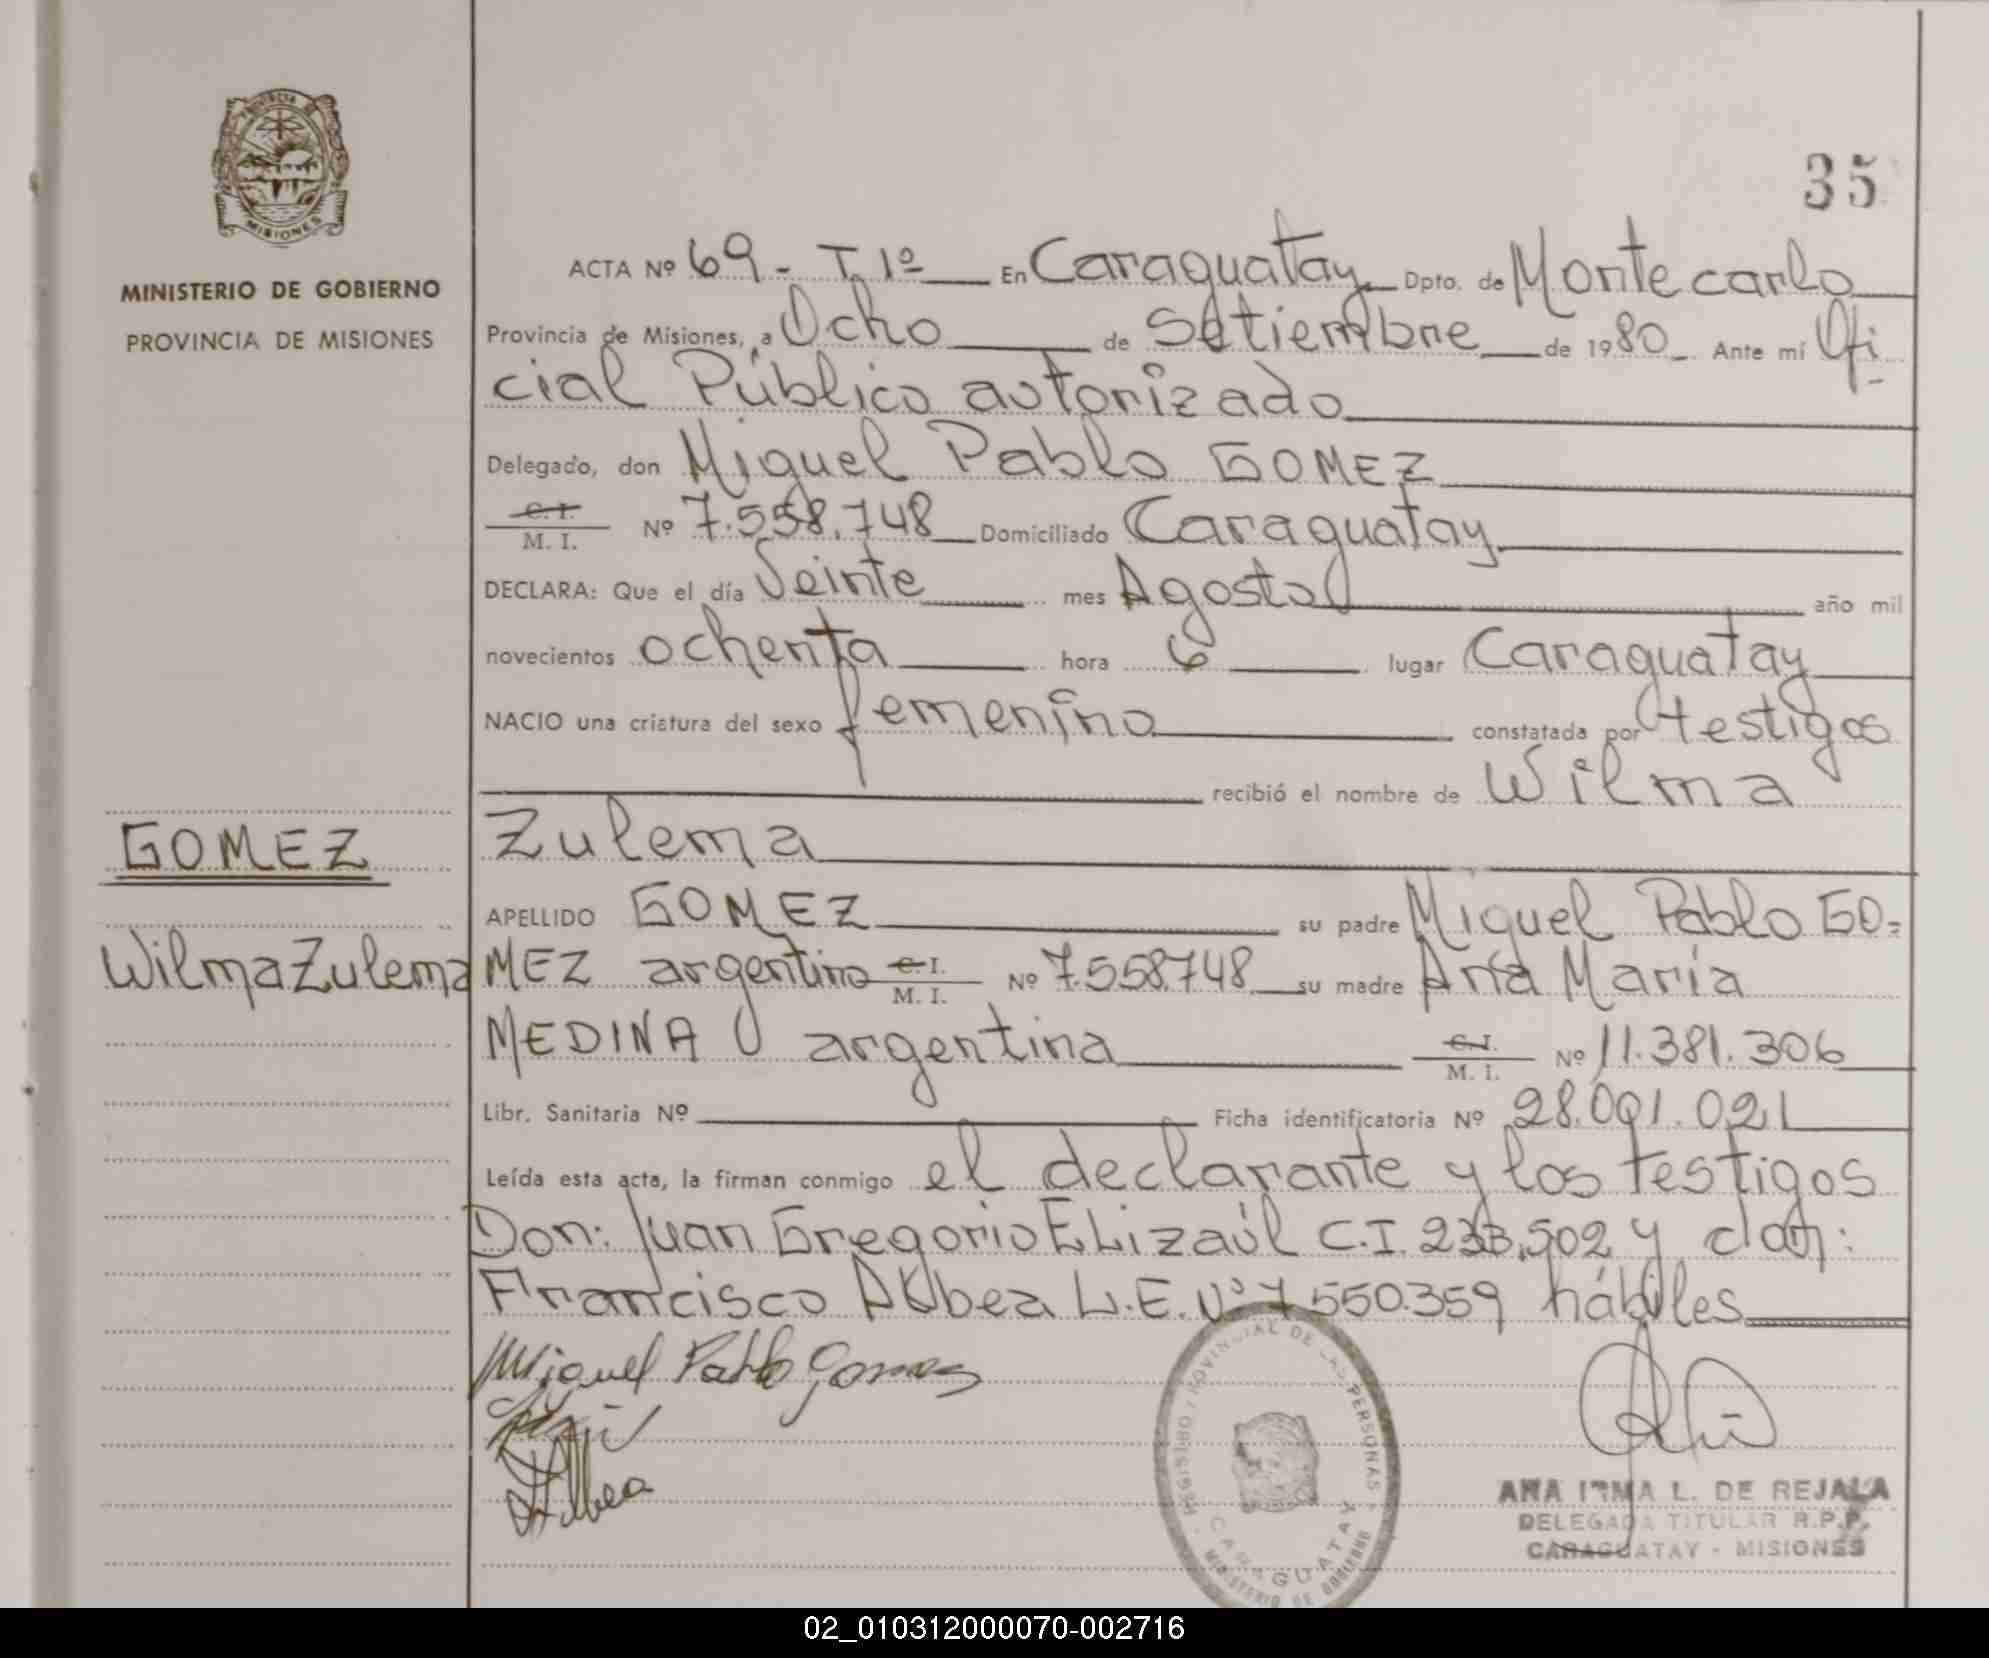 PROVINCIA DE
MISIONES
MINISTERIO DE GOBIERNO
PROVINCIA DE MISIONES
35
ACTA Nº 69 - T. 1º En Caraguatay Dpto. de Montecarlo
Provincia de Misiones, a Ocho de Setiembre de 1980 Ante mí Ofi-
cial Público autorizado
Delegado, don Miguel Pablo GOMEZ
C. I.
M. I. Nº 7.558.748 Domiciliado Caraguatay
DECLARA: Que el día Veinte mes Agosto año mil
novecientos ochenta hora 6 lugar Caraguatay
NACIO una criatura del sexo femenino constatada por testigos
recibió el nombre de Wilma
Zulema
GOMEZ
APELLIDO GOMEZ su padre Miguel Pablo GO=
Wilma Zulema
MEZ argentino C. I.
M. I. Nº 7.558.748 su madre Ana María
MEDINA argentina C. I.
M. I. Nº 11.381.306
Libr. Sanitaria Nº Ficha identificatoria Nº 28.091.021
Leída esta acta, la firman conmigo el declarante y los testigos
Don: Juan Gregorio ELizaúl C.I. 233.502 y don:
Francisco ALbea L.E. Nº 7.550.359 hábiles
Miguel Pablo Gomez
Albea
REGISTRO PROVINCIAL DE LAS PERSONAS
CARAGUATAY
MINISTERIO DE GOBIERNO
ANA IRMA L. DE REJALA
DELEGADA TITULAR R.P.P.
CARAGUATAY - MISIONES
02_010312000070-002716